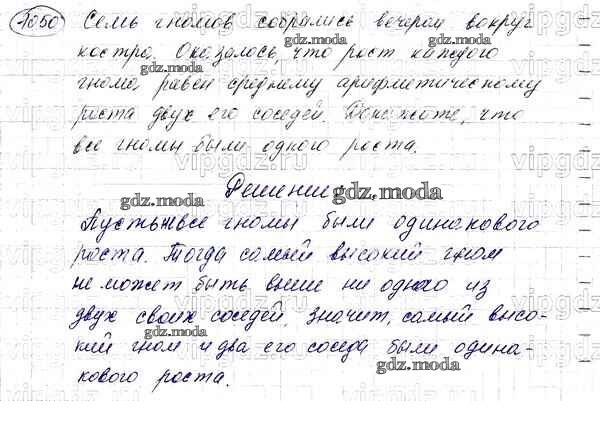 1050 Семь гномов собрались вечером вокруг
костра. Оказалось, что рост каждого
гнома равен среднему арифметическому
роста двух его соседей. Докажите, что
все гномы были одного роста.
Решение
Пусть не все гномы были одинакового
роста. Тогда самый высокий гном
не может быть выше ни одного из
двух своих соседей. Значит, самый высо-
кий гном и два его соседа были одина-
кового роста.
gdz.moda
vipgdz.ru